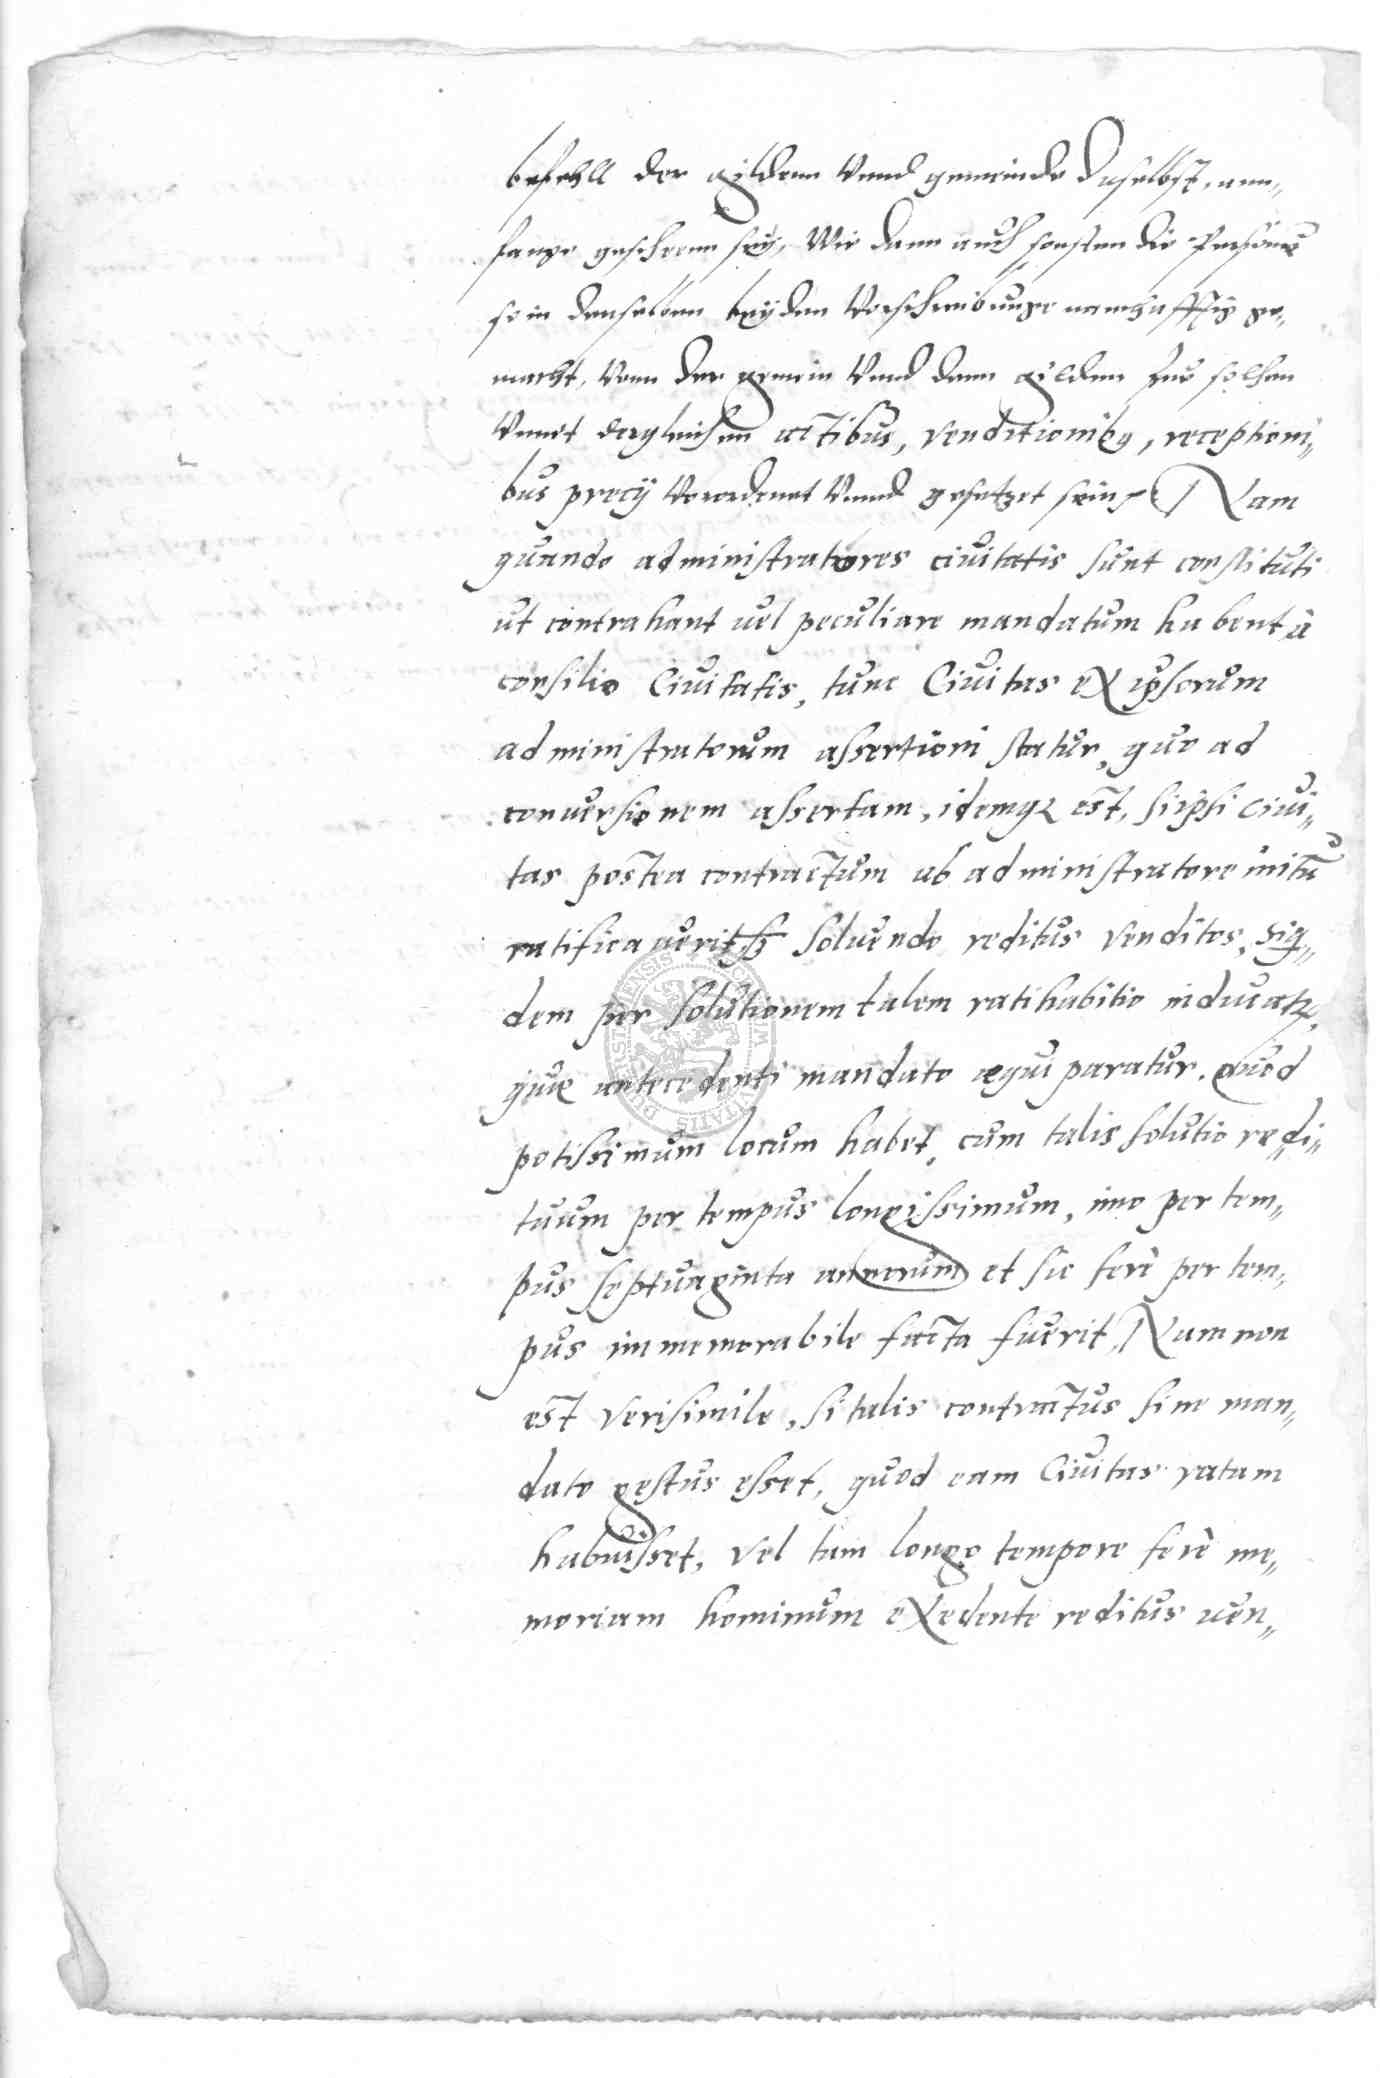 befehll der gildenn vnnd gemeinde daselbst, ann„
fangs geschehenn sey, Wie dann auch sonsten die Personen
so in denselben beyden Verschreibunge namhafftig ge„
macht, vonn der gemein vnnd denn gilden zue solchen
vnnd dergleichenn actibus, venditionibus, receptioni„
bus precij verordenet vnnd gesetzet sein, Nam
quando administratores ciuitatis sunt constituti
ut contrahant uel peculiare mandatum habent â
consilio Ciuitatis, tunc Ciuitas ex ipsorum
administratorum assertioni statur, quo ad
conuersionem assertam, idemque est, si ipsi ciui„
tas postea contractum ab administratore initũ
ratificauerit, soluendo reditus venditos, siq„
dem per solutionem talem ratihabitio inducatur,
quæ antecedenti mandato æquiparatur. quod
potissimum locum habet, cum talis solutio redi„
tuum per tempus longissimum, imo per tem„
pus septuaginta annorum et sic ferè per tem„
pus immemorabile facta fuerit, Nam non
est verisimile, si talis contractus sine man„
dato gestus esset, quod eam Ciuitas ratam
habuisset, vel tam longo tempore ferè me„
moriam hominum exedente reditus uen„
PURKYNENSIS UNIVERSITATIS